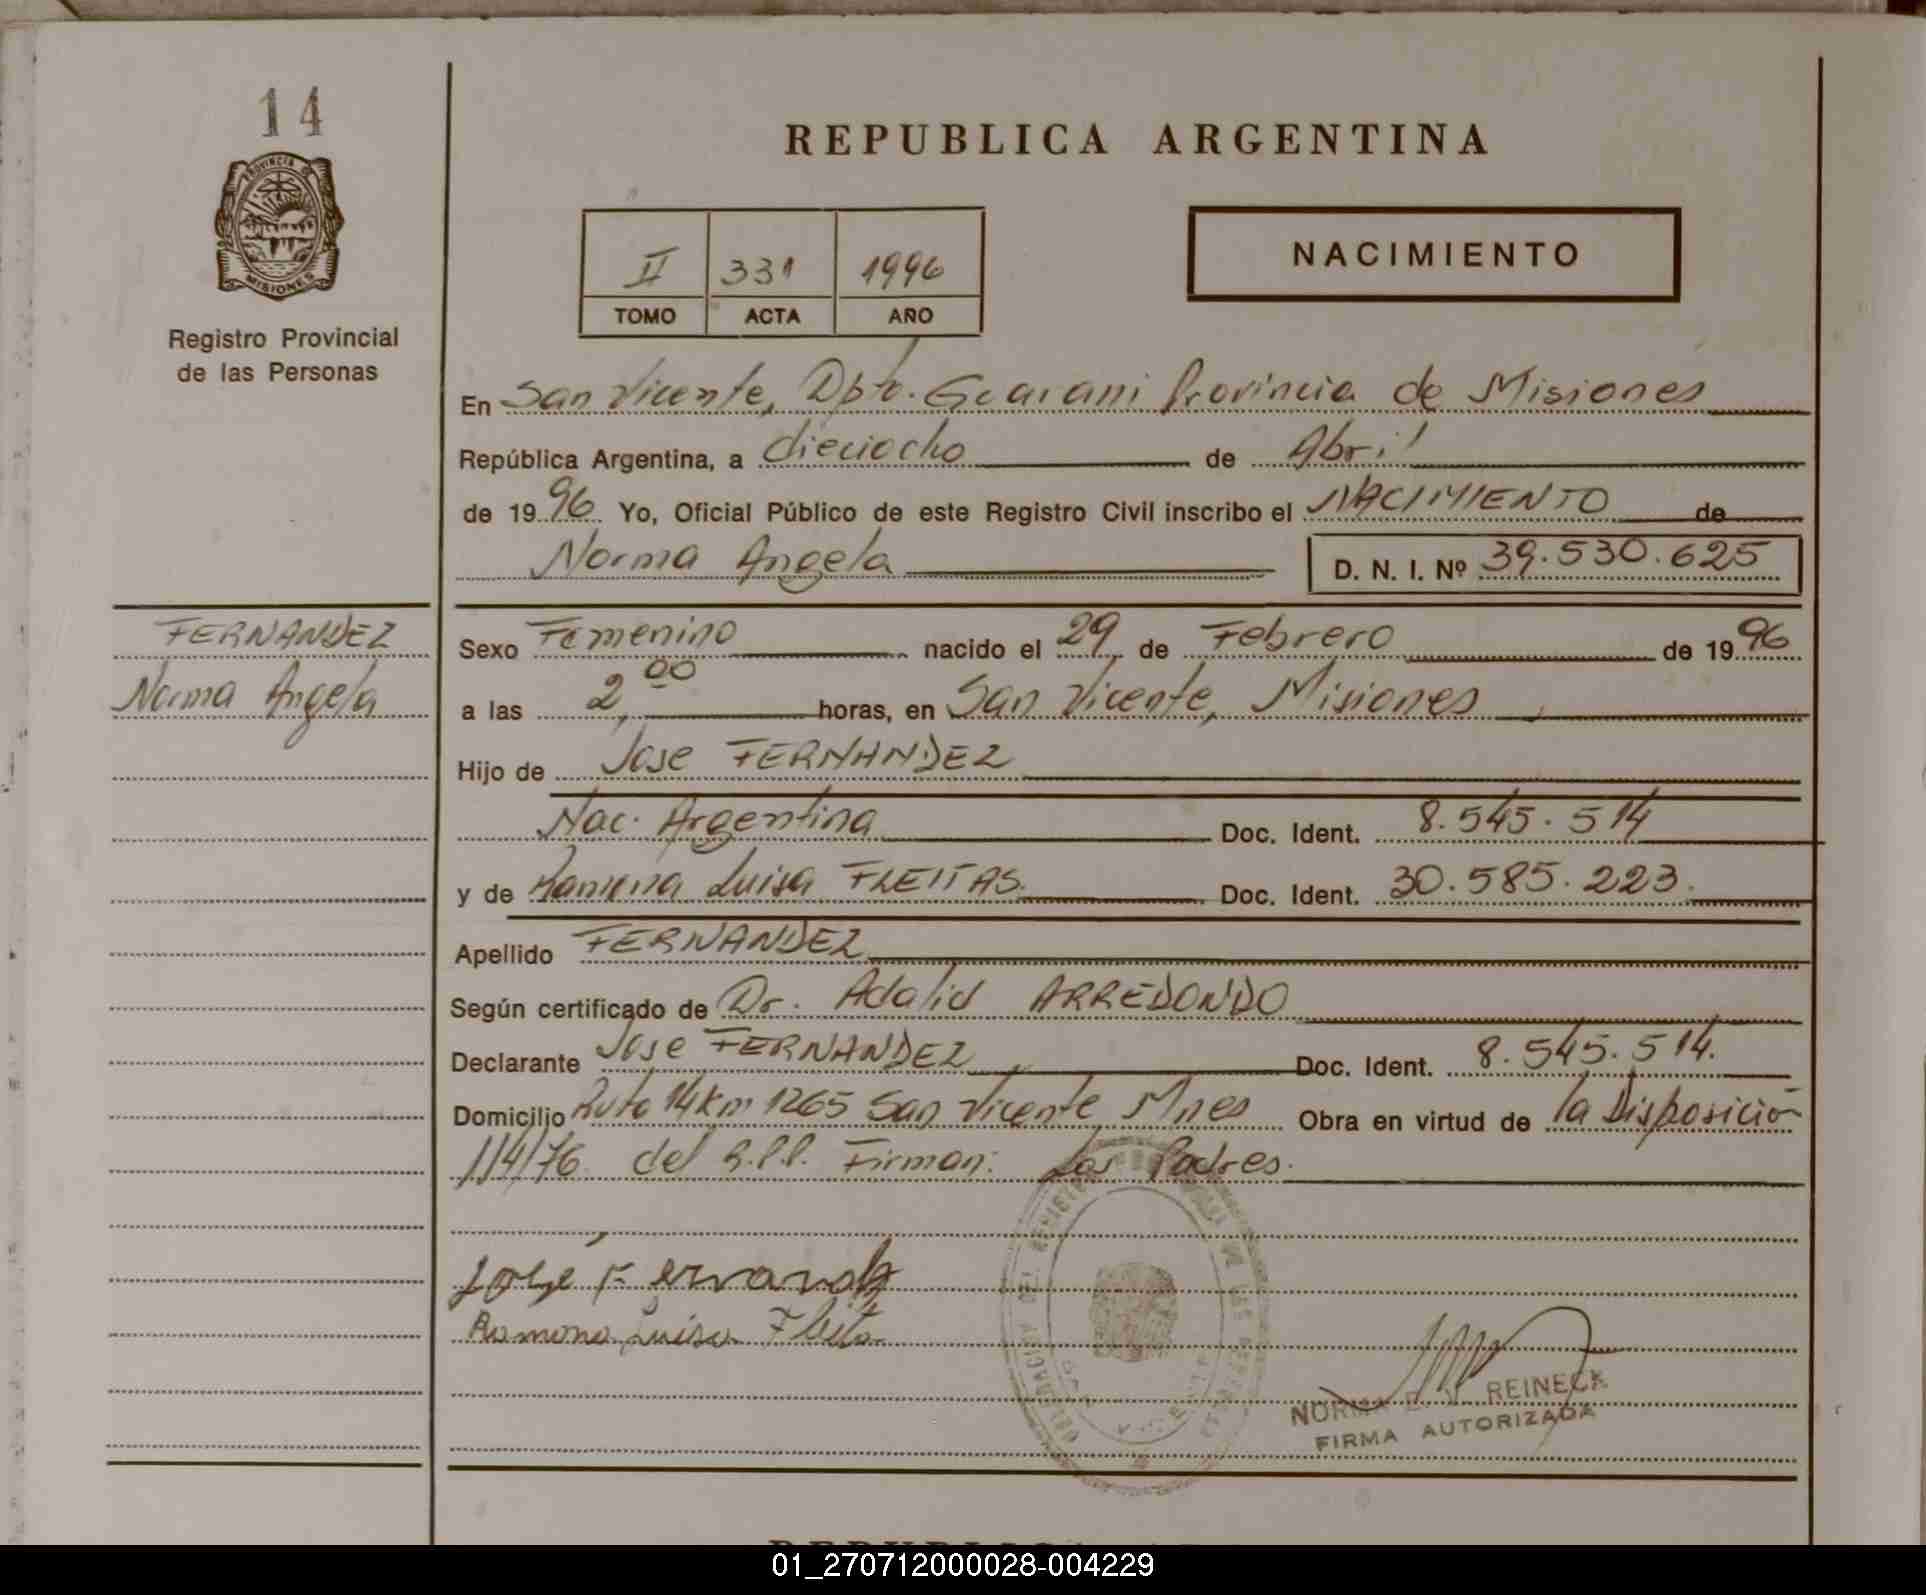 14
PROVINCIA D
MISIONES
Registro Provincial
de las Personas
REPUBLICA ARGENTINA
II 331 1996
TOMO ACTA AÑO
NACIMIENTO
En San Vicente, Dpto. Guarani Provincia de Misiones
República Argentina, a dieciocho de Abril
de 1996 Yo, Oficial Público de este Registro Civil inscribo el NACIMIENTO de
Norma Angela D. N. I. Nº 39.530.625
FERNANDEZ
Norma Angela
Sexo Femenino nacido el 29 de Febrero de 1996
a las 2,00 horas, en San Vicente, Misiones
Hijo de Jose FERNANDEZ
Nac. Argentina Doc. Ident. 8.545.514
y de Ramona Luisa FLEITAS. Doc. Ident. 30.585.223.
Apellido FERNANDEZ
Según certificado de Dr. Adalid ARREDONDO
Declarante Jose FERNANDEZ Doc. Ident. 8.545.514.
Domicilio Ruta 14 Km 1265 San Vicente Mnes Obra en virtud de la Disposició
114/76 del R.P.P. Firman: Los Padres.
Ramona Luisa
NORMA E. V. REINECK
FIRMA AUTORIZADA
01_270712000028-004229